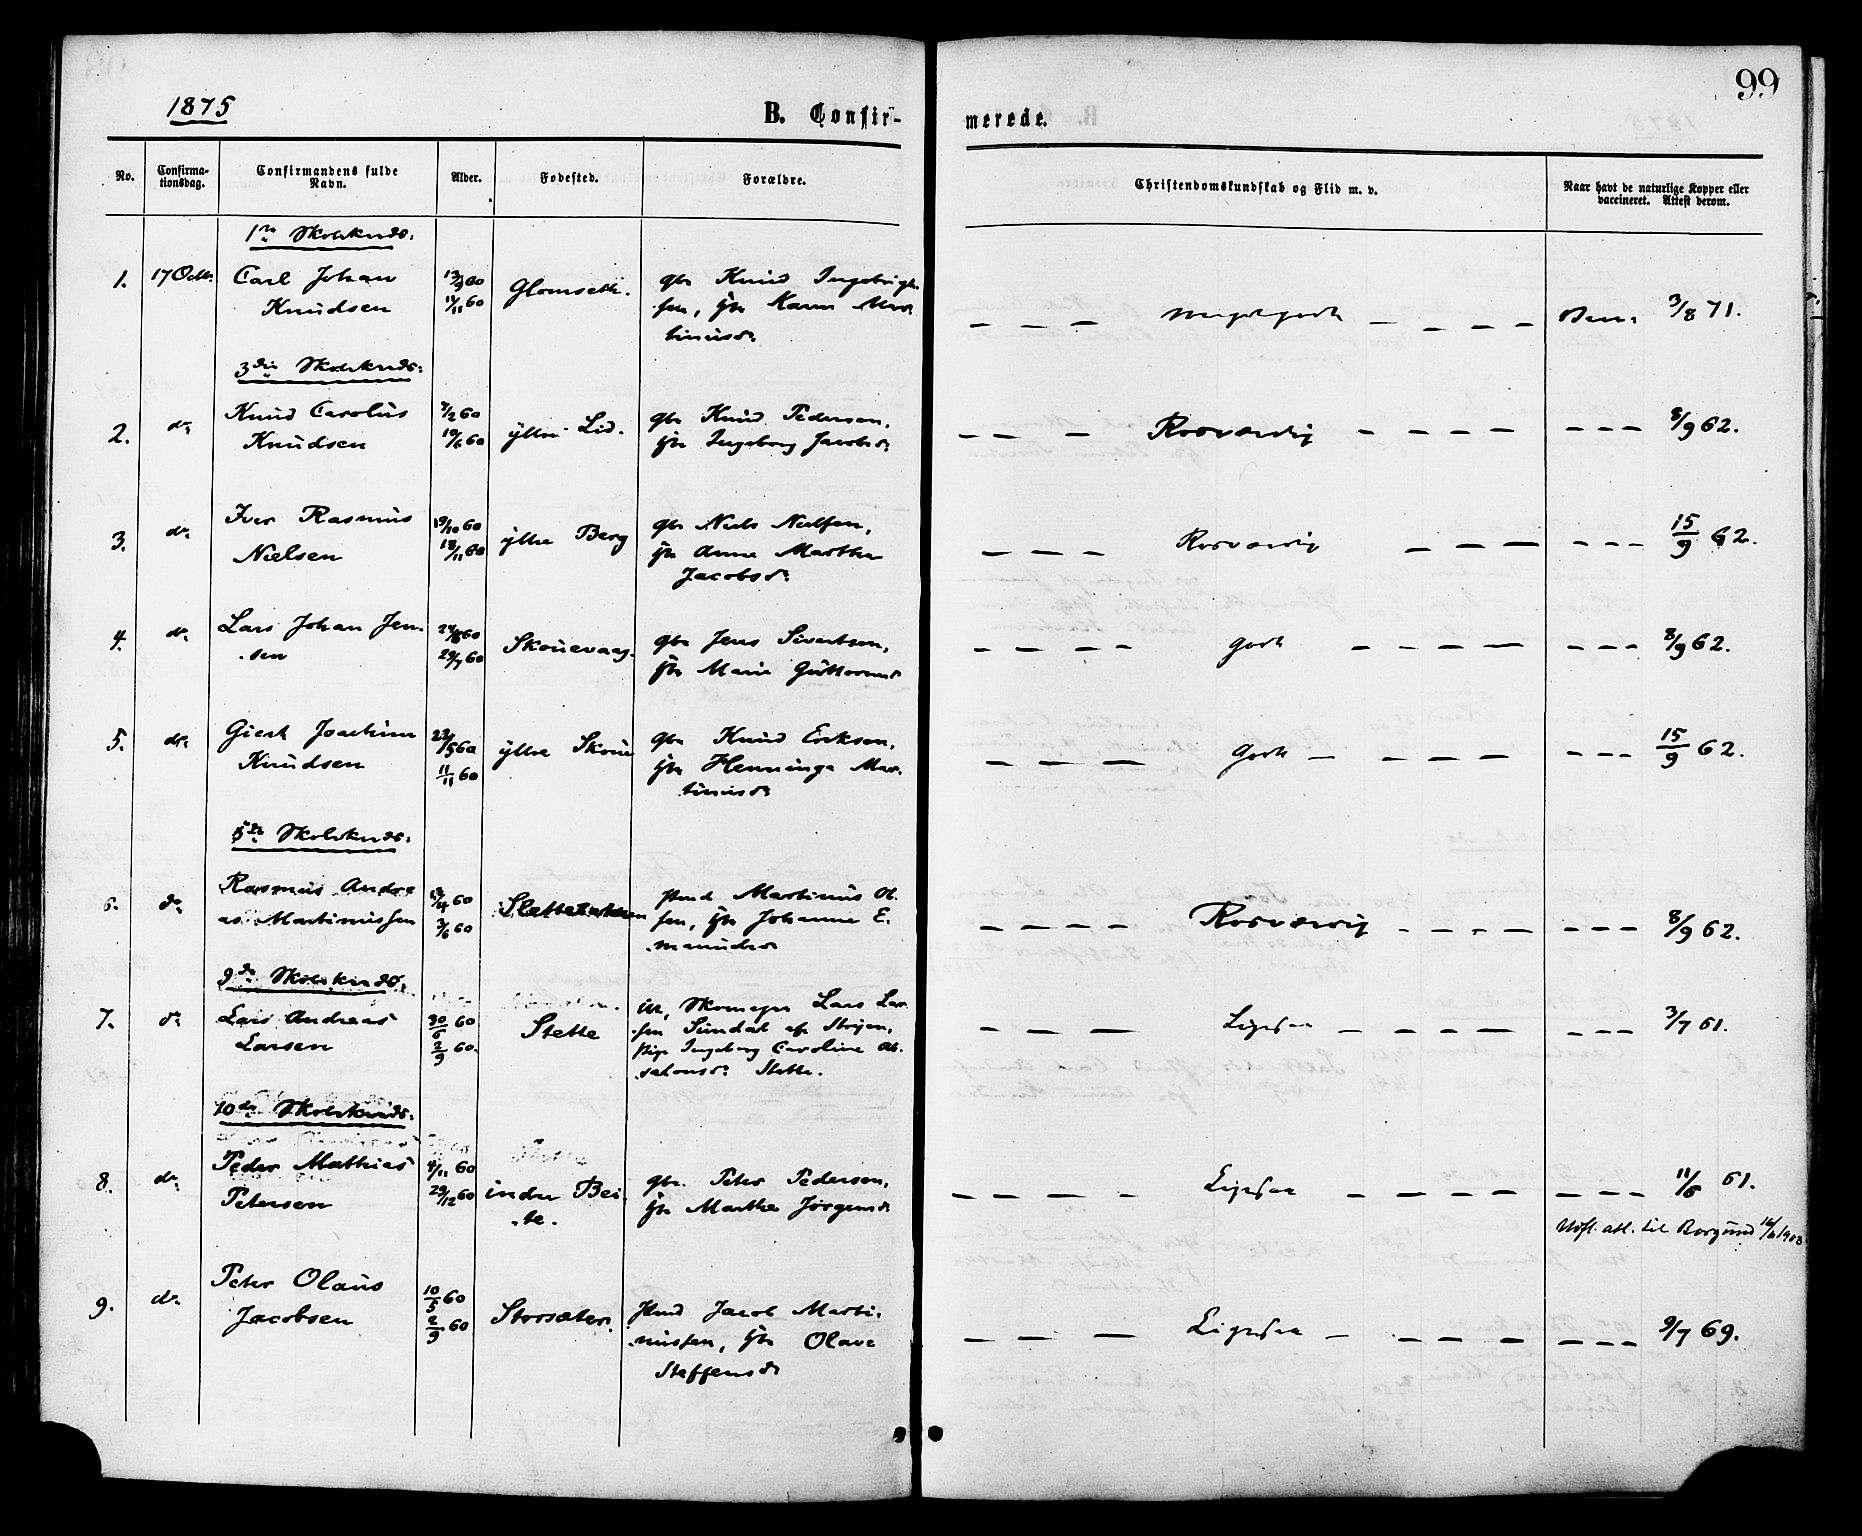 99
1875
B. Confir-
merede.
No.
Confirma-
tionsdag.
Confirmandens fulde
Navn.
Alder.
Fødested.
Forældre.
Christendomskundskab og Flid m. v.
Naar havt de naturlige Kopper eller
vaccineret. Attest derom.
1ste Skolekreds:
1. 17 Octr. Carl Johan
Knudsen
Glomseth.
gbr Knud Ingebrigt-
sen, Karen Mar-
tinusdr
Meget godt
3/8 71.
3die Skolekreds:
2. do Knud Carolus
Knudsen
7/2 60
10/6 60
yttre Lid.
gbr Knud Pedersen,
Ingeborg Jacobsdr
Rosværdig
8/9 62.
3. do Iver Rasmus
Nielsen
19/10 60
18/11 60
yttre Berg
gbr Niels Nielsen,
Anne Marthe
Jacobsdr
Rosværdig
15/9 62.
4. do Lars Johan Jen-
sen
29/7 60
Skouevaag.
gbr Jens Sivertsen,
Marie Guttormsdr
godt
8/9 62.
5. do Giert Joachim
Knudsen
11/11 60
yttre Skoue
gbr Knud Eriksen,
Henninga Mar-
tinusdr
godt
15/9 62.
5te Skolekreds:
6. do Rasmus Andre-
as Martinussen
3/6 60
Hmd Martinus Ol-
sen, Johanne E-
manuelsdr
Rosværdig
8/9 62.
9de Skolekreds.
7. do Lars Andreas
Larsen
30/6 60
2/9 60.
Stette
Lars Lar-
sen Sundal af Strijen,
pige Ingeborg Caroline Ab-
salonsdr Stette.
Ligesaa
3/7 61.
10de Skolekreds:
8. do Peder Mathias
Petersen
4/11 60
29/12 60
indre Bei-
te.
gbr. Peter Pedersen,
Marthe Jørgensdr
Ligesaa
11/6 61.
Udfl. att. til Borgund 1903
9. do Peter Olaus
Jacobsen
10/5 60
2/9 60
Storsæter.
Hmd Jacob Marti-
nussen, Olave
Steffensdr
Ligesaa
9/7 69.